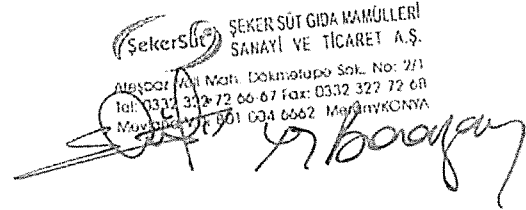 ŞekerSüt ŞEKER SÜT GIDA MAMÜLLERİ
SANAYİ VE TİCARET A.Ş.
Mah. Sok. No: 2/1
Tel: 0332 322 72 66-67 Fax: 0332 322 72 68
001 004 6662 Meram/KONYA